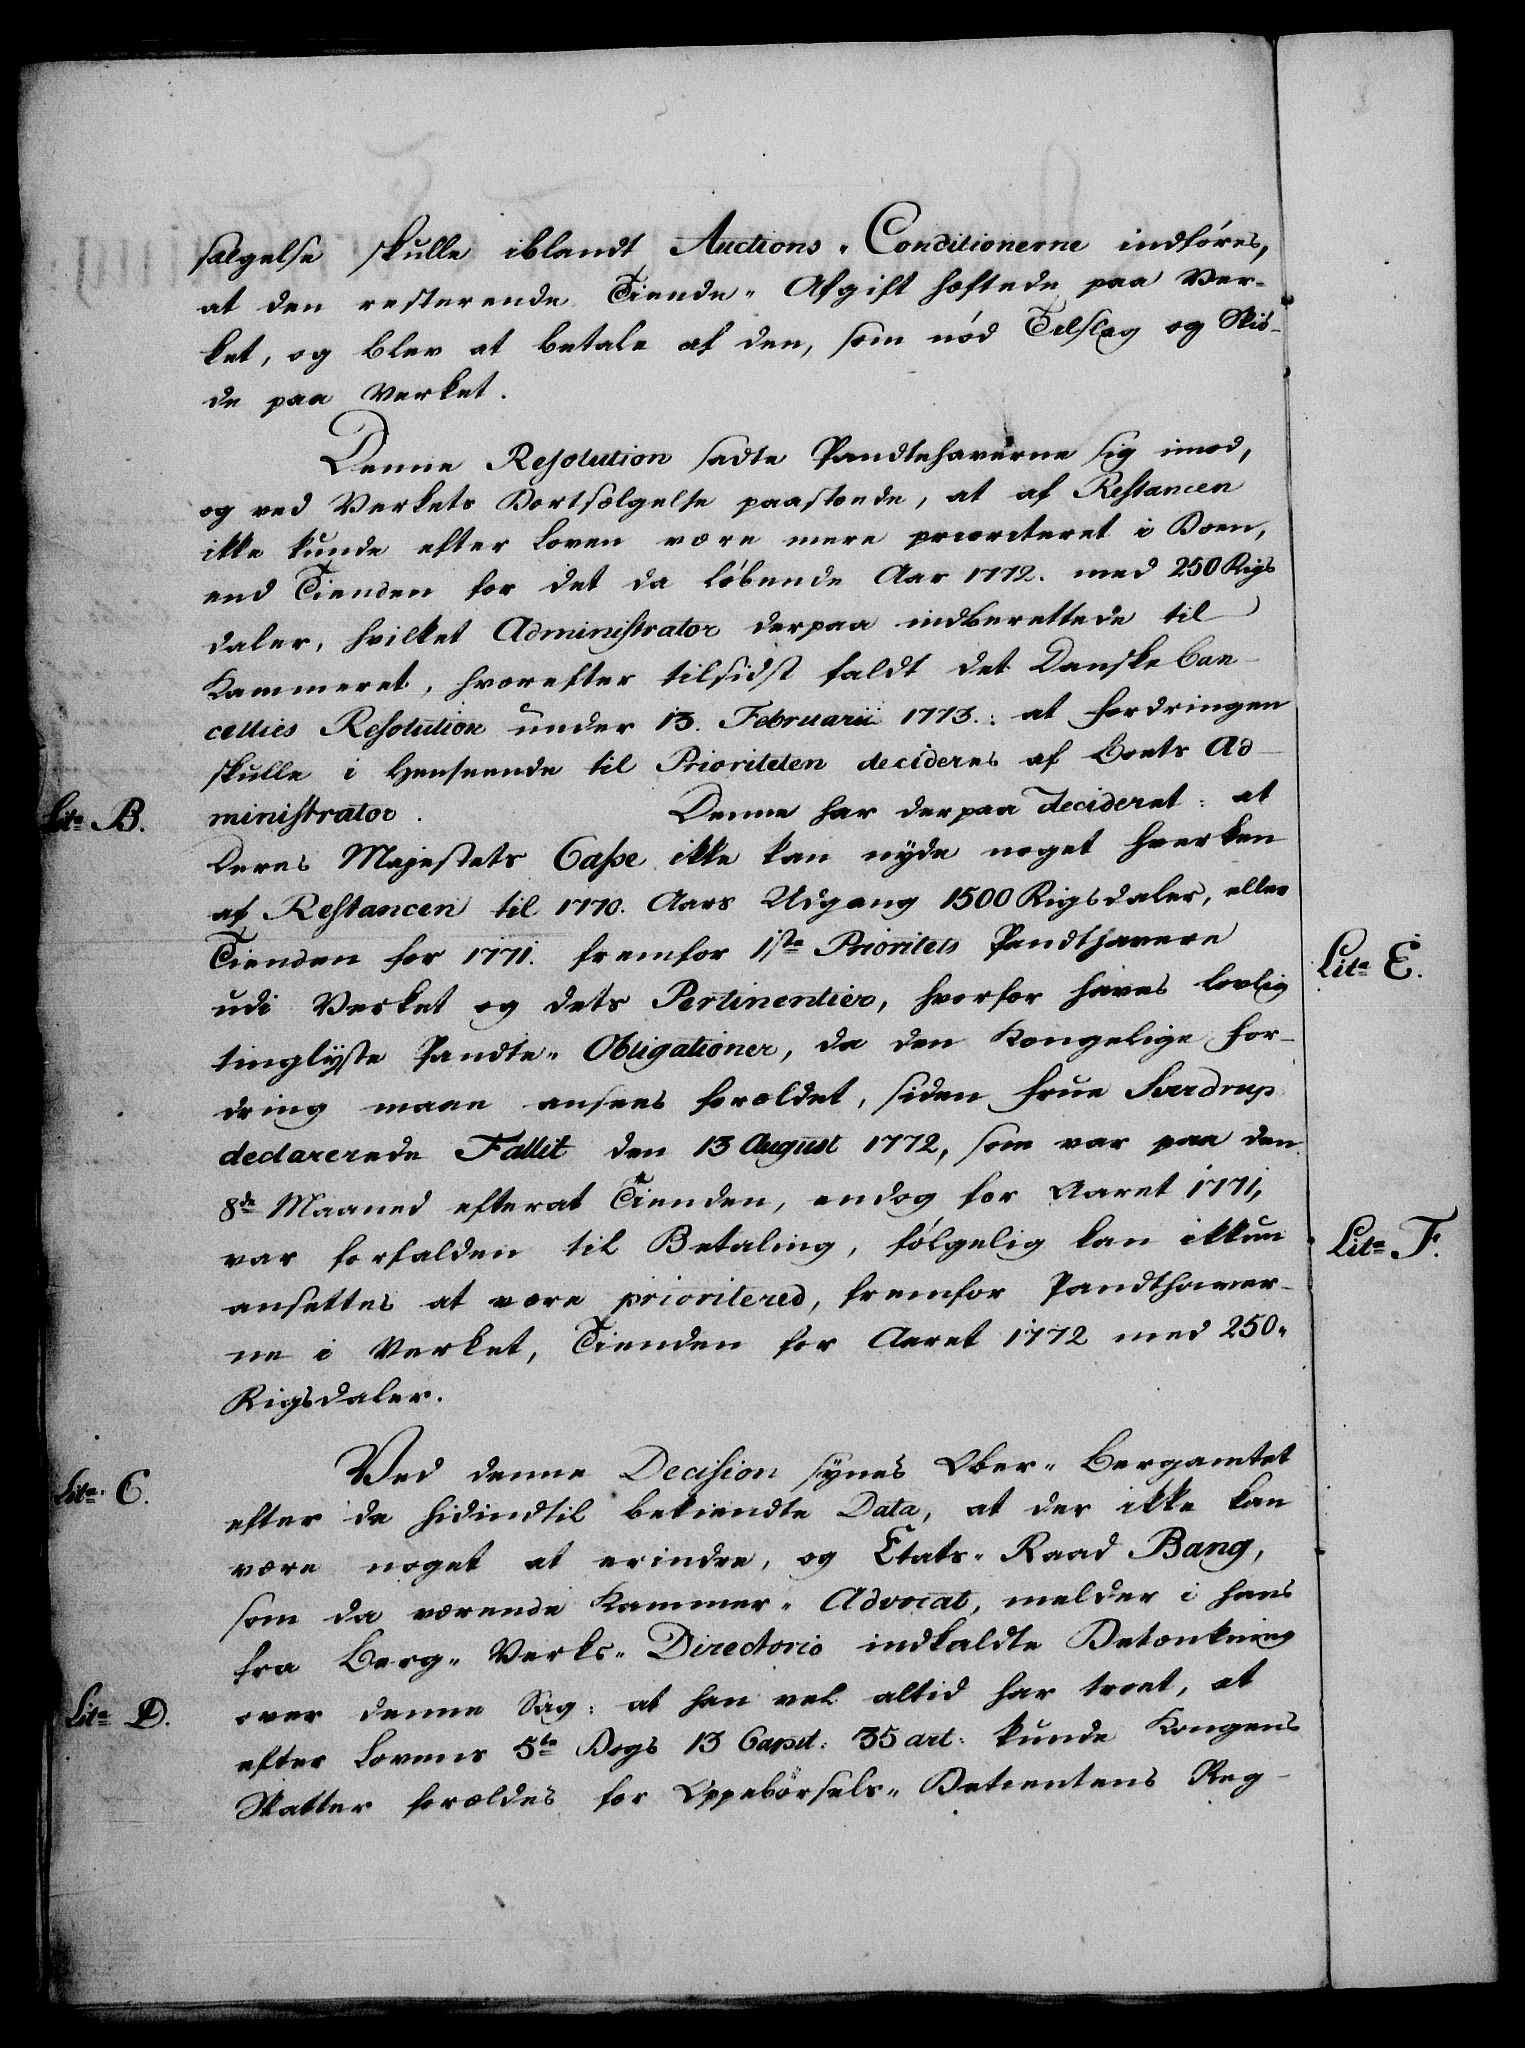 sælgelse skulle iblandt Auctions-Conditionerne indføres,
at den resterende Tiende-Afgift hæftede paa Ver-
ket, og blev at betale af den, som nød Tilslag og Skiö-
de paa Verket.
Denne Resolution sadte Pandtehaverne sig imod,
og ved Verkets Bortsælgelse paastoede, at af Restancen
ikke kunde efter Loven være mere prioriteret i Boen,
end Tienden for det da løbende Aar 1772. med 250 Rigs
daler, hvilket Administrator derpaa indberettede til
Kammeret, hvorefter tilsidst faldt det Danske Can-
cellies Resolution under 13. Februarii 1773.: at fordringen
skulle i Henseende til Prioriteten decideres af Boets Ad-
Lit. B. ministrator. Denne har derpaa decideret: at
Deres Majestets Casse ikke kan nyde noget hverken
af Restancen til 1770. Aars Udgang 1500 Rigsdaler, eller
Tienden for 1771. fremfor 1ste Prioritets Pandthavere
Lit. E.
udi Verket og dets Pertinentier, hvorfor haves lovlig
tinglyste Pandte-Obligationer, da den Kongelige For-
dring maae ansees forældet, siden Frue Sverdrup
declarerede Fallit den 13 August 1772, som var paa den
8de Maaned efterat Tienden, endog for Aaret 1771,
var forfalden til Betaling, følgelig kan ikkun
Lit. F.
ansettes at være prioritered, fremfor Pandthaver-
ne i Verket, Tienden for Aaret 1772 med 250
Rigsdaler.
Ved denne Decision synes Ober-Bergamtet
Lit. C. efter de hidindtil bekiendte Data, at der ikke kan
være noget at erindre, og Etats-Raad Bang,
som da værende Kammer-Advocat, melder i hans
fra Berg-Verks-Directorio indkaldte Betænkning
Lit. D. over denne Sag: at han vel altid har troet, at
efter Lovens 5te Bogs 13 Capit: 35 art: kunde Kongens
Skatter forældes for Oppebørsels-Betientens Reg-